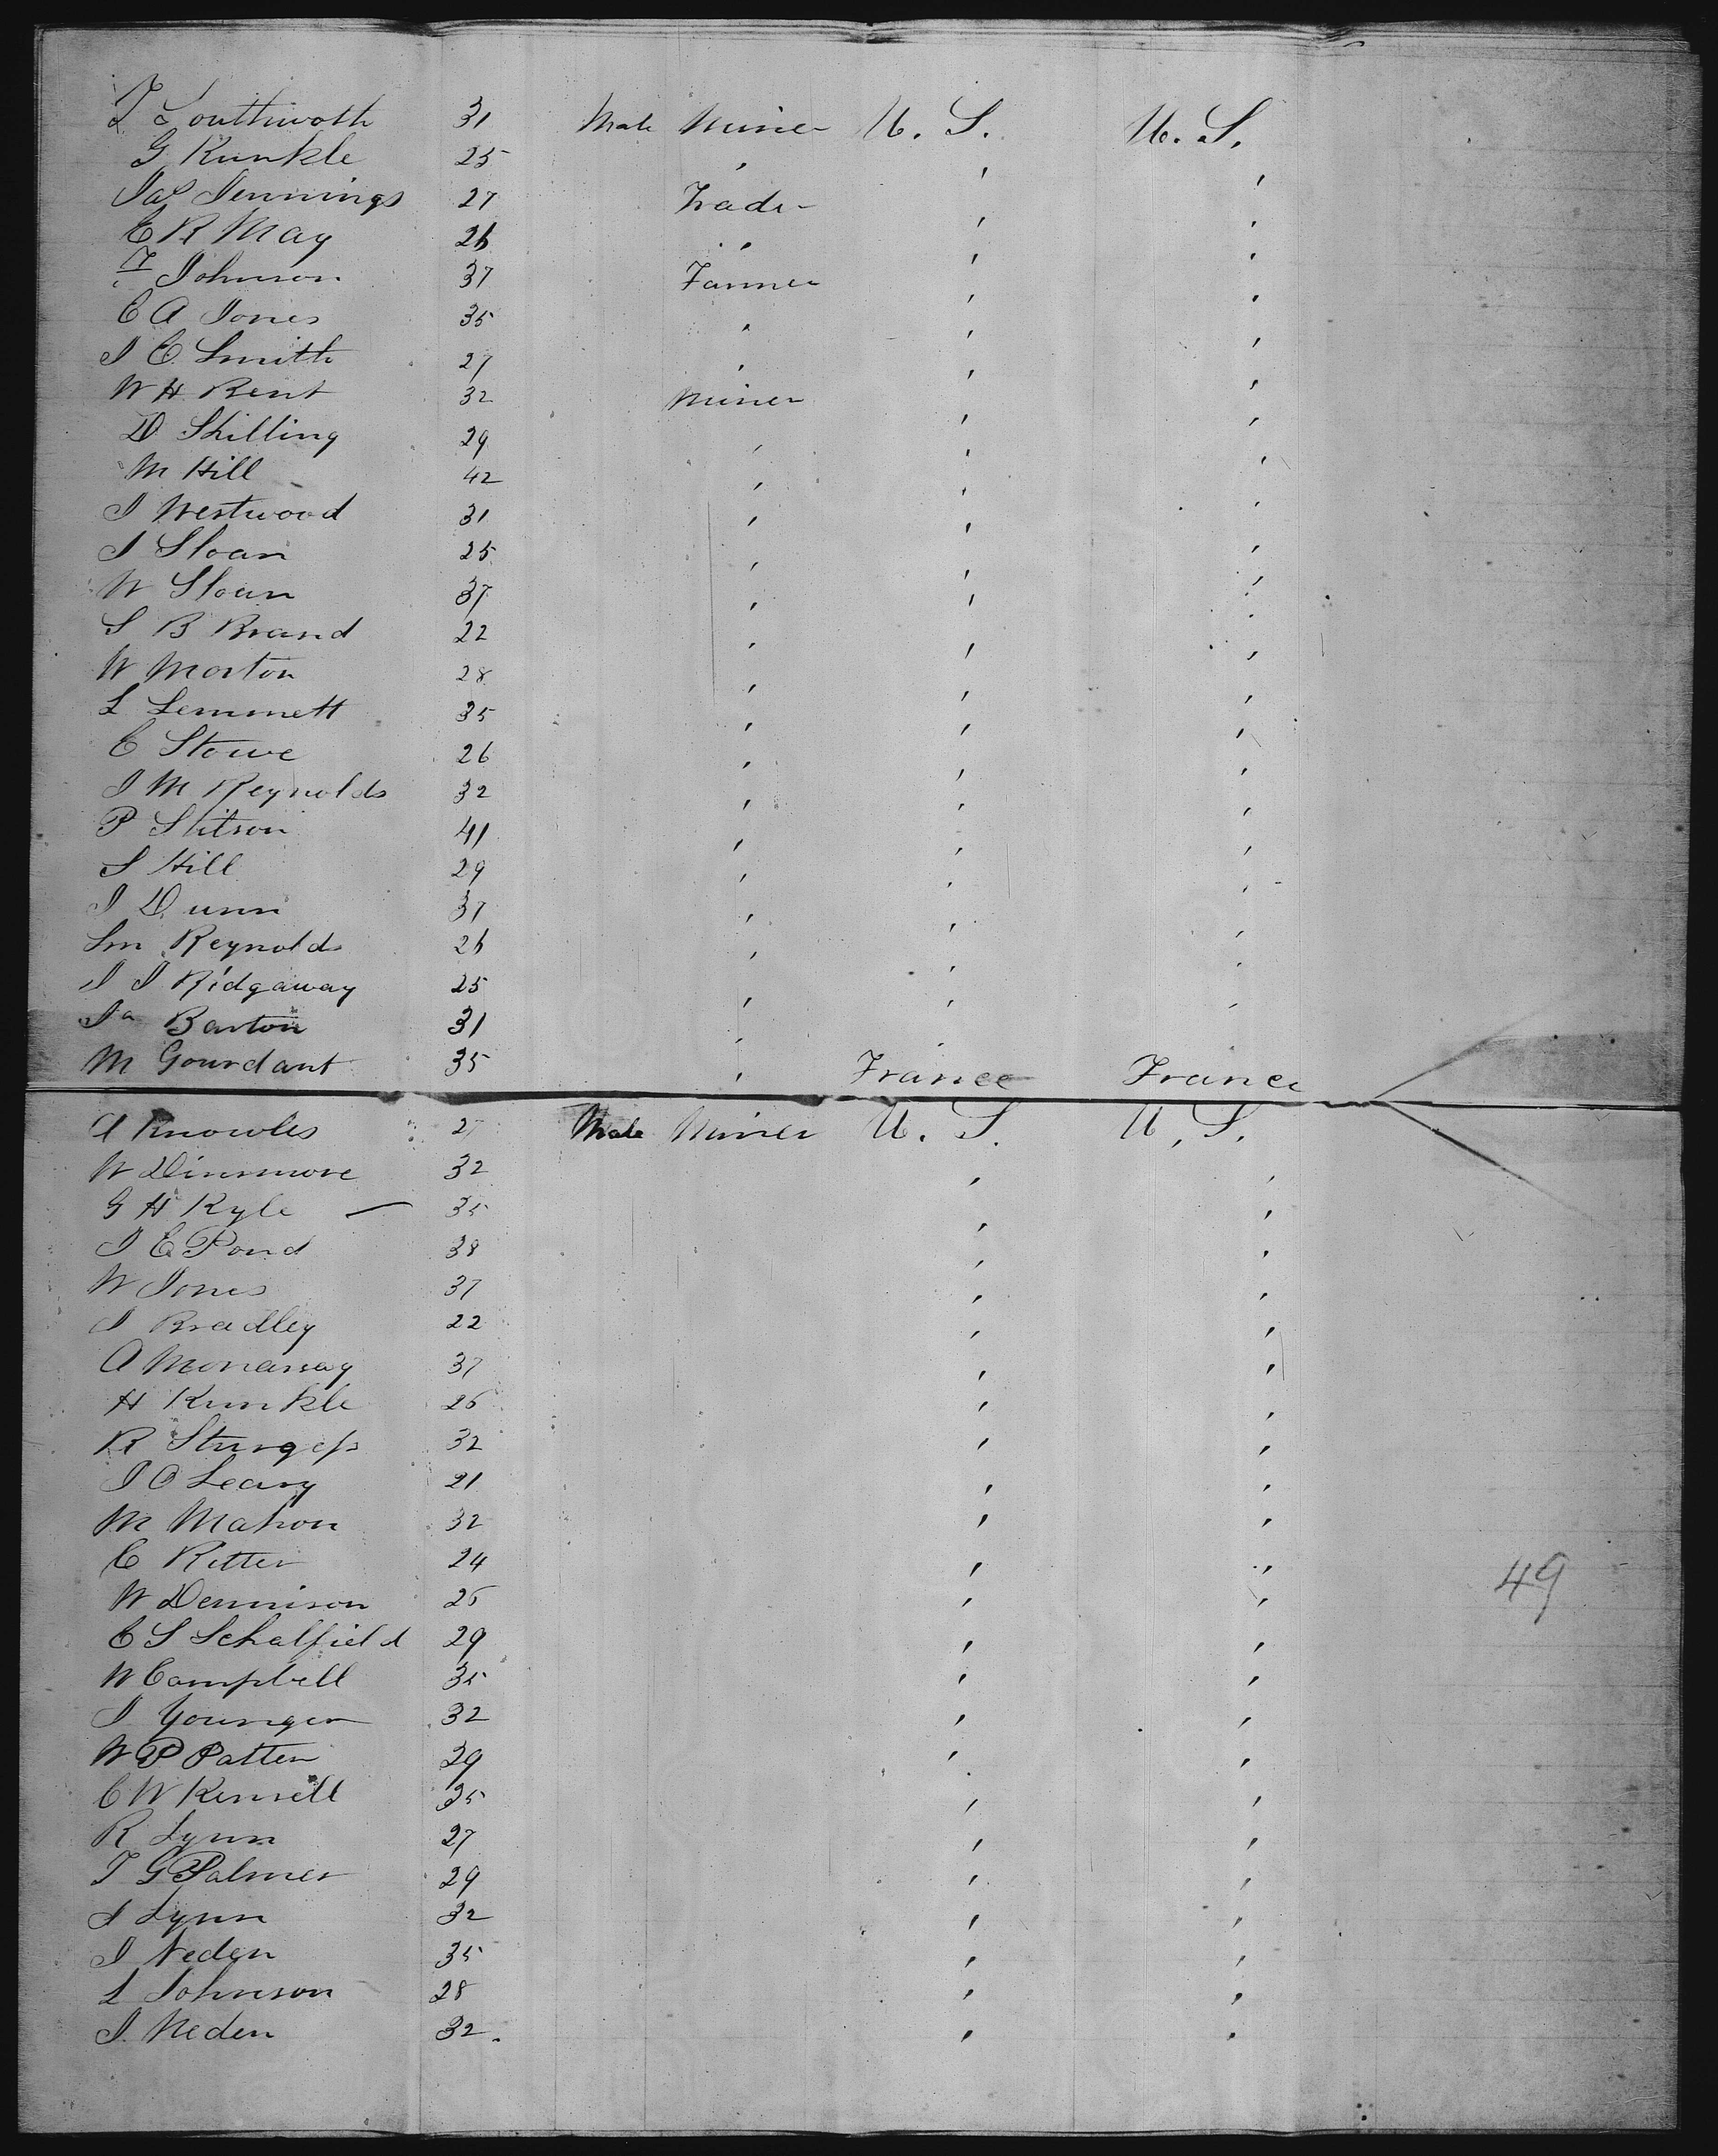 T Southwoth 31 Male Miner U. S. U. S.
G Runkle 25 " " "
Jas Jennings 27 Trader " "
E R May 26 " " "
F Johnson 37 Farmer " "
E A Jones 35 " " "
J E Smith 27 " " "
W H Bent 32 Miner " "
D Shilling 29 " " "
M Hill 42 " " "
J Westwood 31 " " "
J Sloan 25 " " "
W Sloan 37 " " "
S B Brand 22 " " "
W Morton 28 " " "
L Lemmett 35 " " "
C Stowe 26 " " "
J M Reynolds 32 " " "
P Stitson 41 " " "
S Hill 29 " " "
J Dunn 37 " " "
Sm Reynolds 26 " " "
J J Ridgaway 25 " " "
Ja Barton 31 " " "
M Gourdant 35 " France France
A Knowles 27 Male Miner U. S. U. S.
W Dinsmore 32 " "
G H Kyle — 35 " "
J E Pond 38 " "
W Jones 37 " "
J Bradley 22 " "
A 37 " "
H Runkle 25 " "
R Sturgess 32 " "
J O Leary 21 " "
M Mahon 32 " "
C Ritter 24 " "
W Dennison 25 " "
C S Schalfield 29 " "
W Campbell 35 " "
J Younger 32 " "
W P Patten 29 " "
C W 35 " "
R Lynn 27 " "
T G Palmer 29 " "
J Lynn 32 " "
J Neden 35 " "
L Johnson 28 " "
J. Neden 32. " "
49